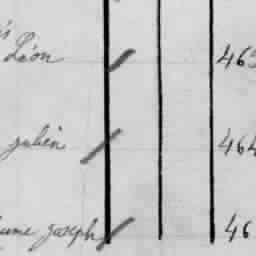 Léon 46
Julien 464
ume Joseph 46